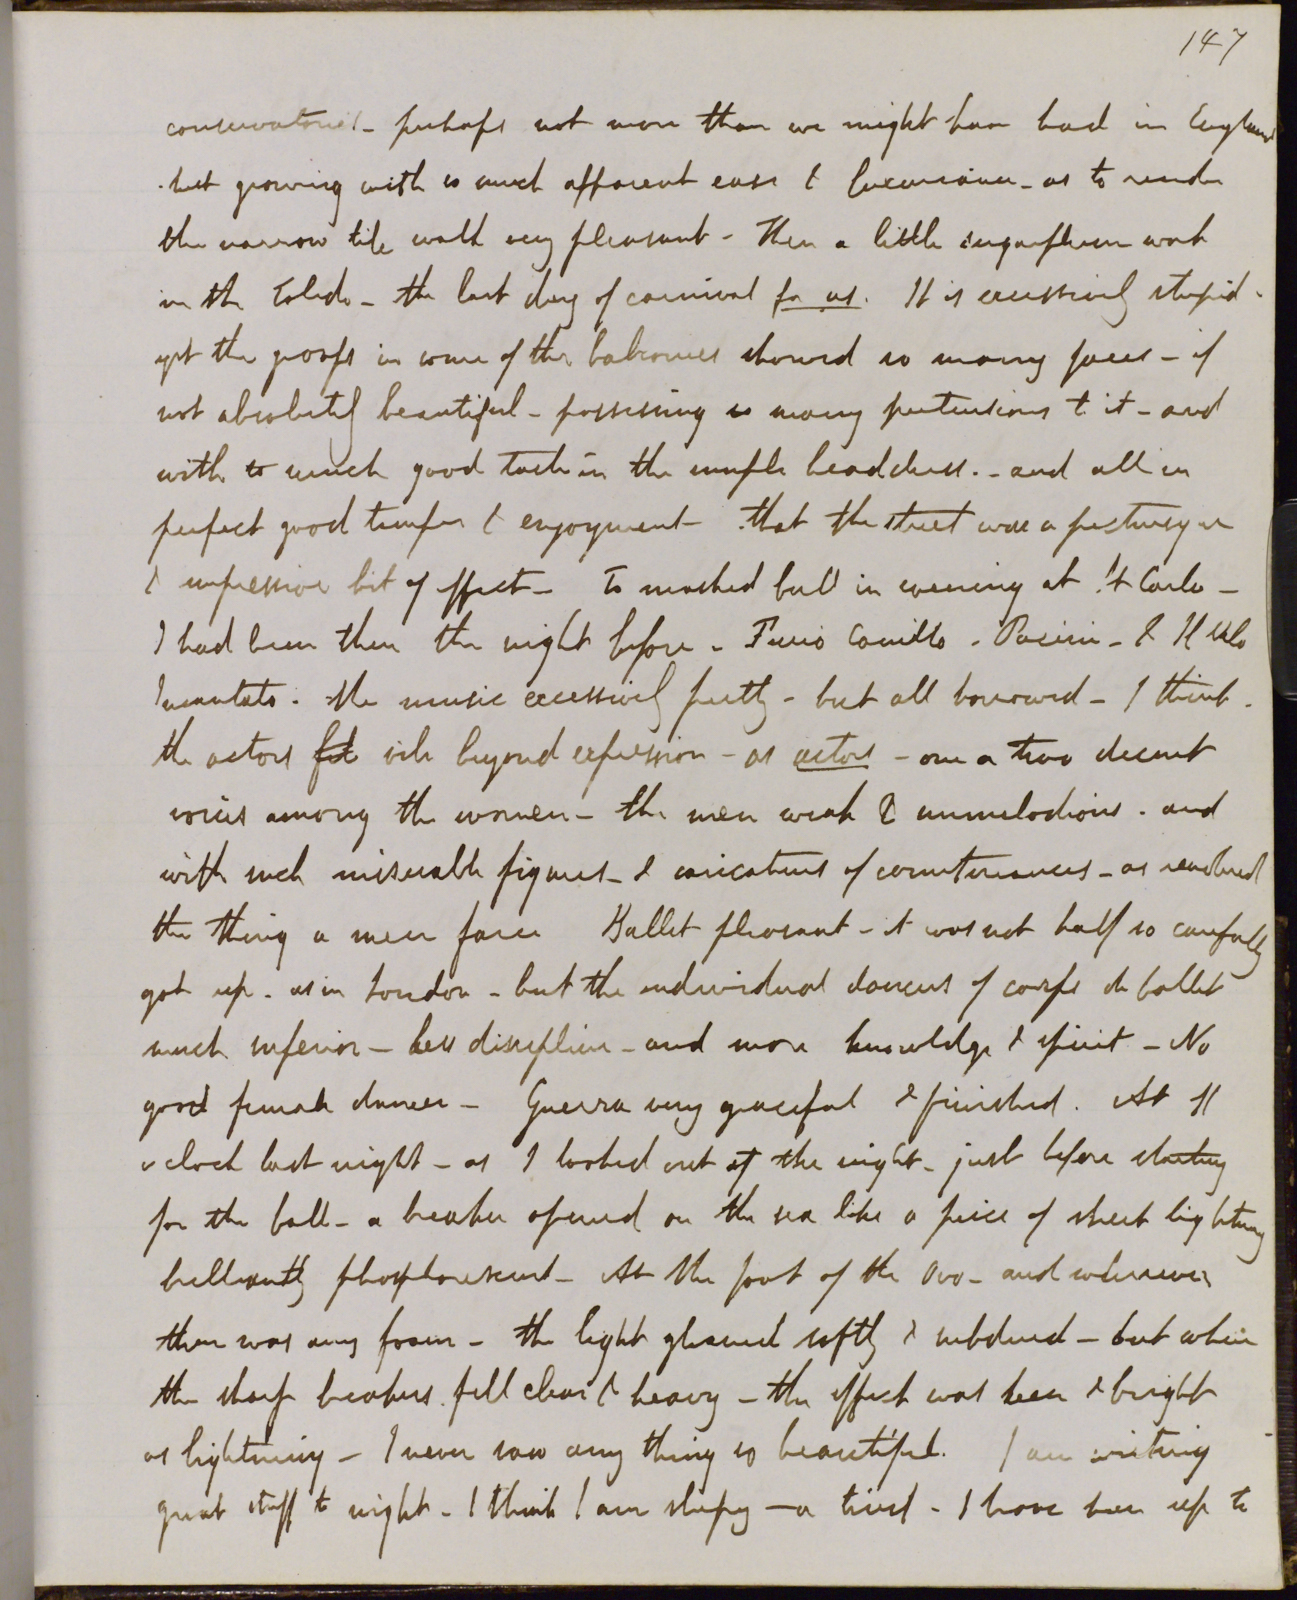 147
conservatories - perhaps not more than we might have had in England
but growing with so much apparent ease & luxuriance - as to render
the narrow tile walk very pleasant - Then a little sugarplum work
in the Toledo - the last day of carnival for us. It is excessively stupid -
yet the groups in some of the balconies showed so many faces - if
not absolutely beautiful - possessing so many pretensions to it - and
with so much good taste in the simple headdress. - and all in
perfect good temper & enjoyment - that the street was a picturesque
& impressive bit of effect - To masked ball in evening at St Carlo -
I had been there the night before - Furio Camillo - Pacini - & Il
Incantato. The music excessively pretty - but all borrowed - I think -
the actors vile beyond expression - as actors - one or two decent
voices among the women - the men weak & unmelodious. and
with such miserable figures - & caricatures of countenances - as rendered
the thing a mere farce Ballet pleasant - it was not half so carefully
got up - as in London - but the individual dancers of corps de ballet
much inferior - less discipline - and more knowledge & spirit - No
good female dancer - Guerra very graceful & finished. At 11
o clock last night - as I looked out at the night - just before starting
for the ball - a breaker opened on the sea like a piece of sheet lightning
brilliantly phosphorescent - At the foot of the Ovo - and wherever
there was any foam - the light gleamed softly & subdued - but where
the sharp breakers fell clear & heavy - the effect was keen & bright
as lightning - I never saw any thing so beautiful. I am writing
great stuff to night - I think I am sleepy - or tired - I have been up to